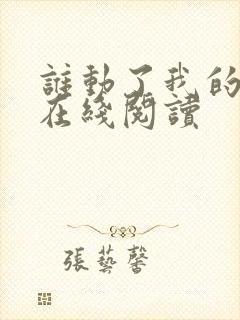 誰動了我的
在綫閱讀
張藝馨